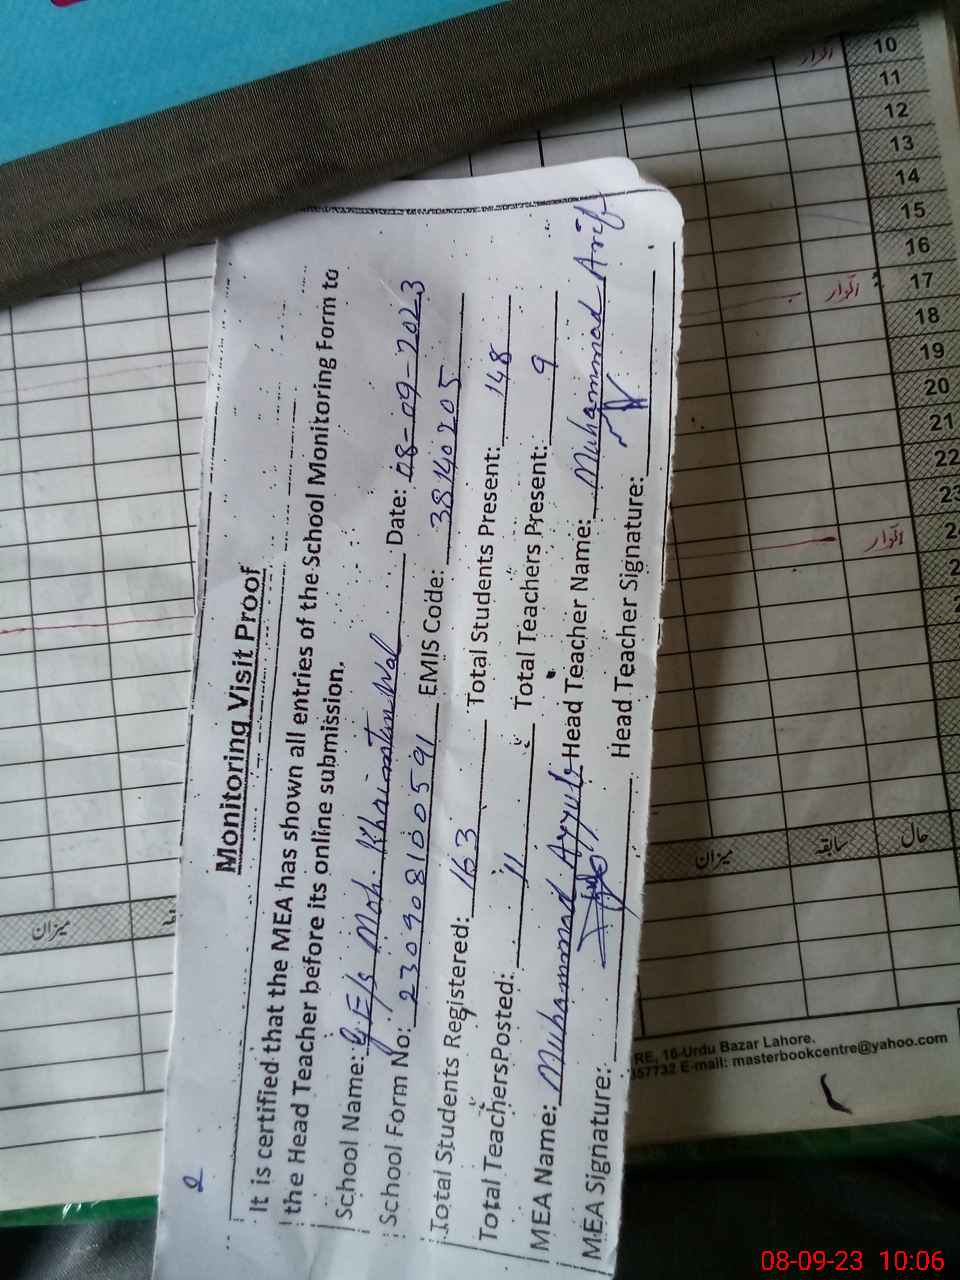 2
Monitoring Visit Proof
It is certified that the MEA has shown all entries of the School Monitoring Form to
the Head Teacher before its online submission.
School Name: G.E/S Moh. Khaimatan Wal Date: 08-09-2023
School Form No: 2309081005 91 EMIS Code: 38140205
Total Students Registered: 163 Total Students Present: 148
Total Teachers Posted: 11 Total Teachers Present: 9
MEA Name: Muhammad Ayyub Head Teacher Name: Muhammad Arif
MEA Signature: Head Teacher Signature:
10
اتوار
11
12
13
14
15
16
17
اتوار
18
19
20
21
22
23
24
اتوار
میزان
سابقہ
حال
میزان
RE, 16-Urdu Bazar Lahore.
357732 E-mail: masterbookcentre@yahoo.com
08-09-23 10:06